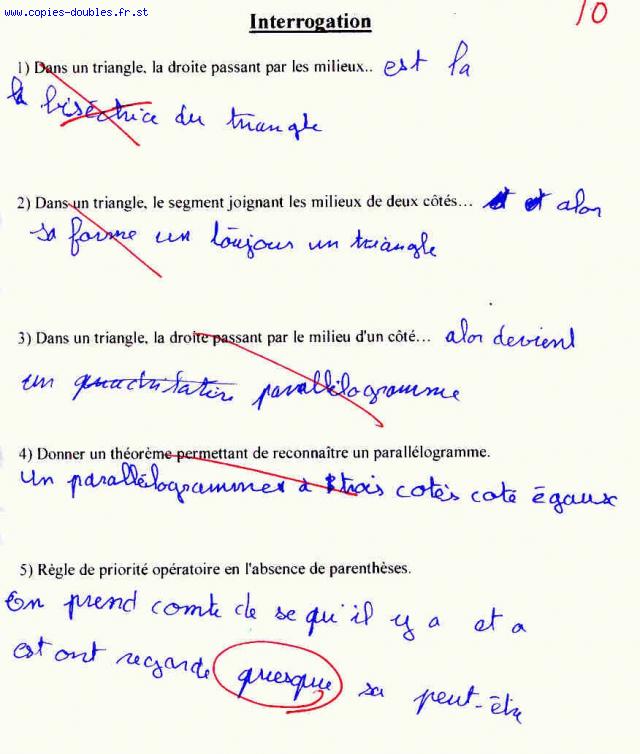 www.copies-doubles.fr.st
Interrogation
10
1) Dans un triangle, la droite passant par les milieux.. est la
la biséctrice du triangle
2) Dans un triangle, le segment joignant les milieux de deux côtés... et alor
sa forme un toujour un triangle
3) Dans un triangle, la droite passant par le milieu d'un côté... alor devient
un parallélogramme
4) Donner un théorème permettant de reconnaître un parallélogramme.
Un parallélogrammes à trois cotés coté égaux
5) Règle de priorité opératoire en l'absence de parenthèses.
On prend comte de se qu'il y a et a
est ont regarde quesque sa peut-être